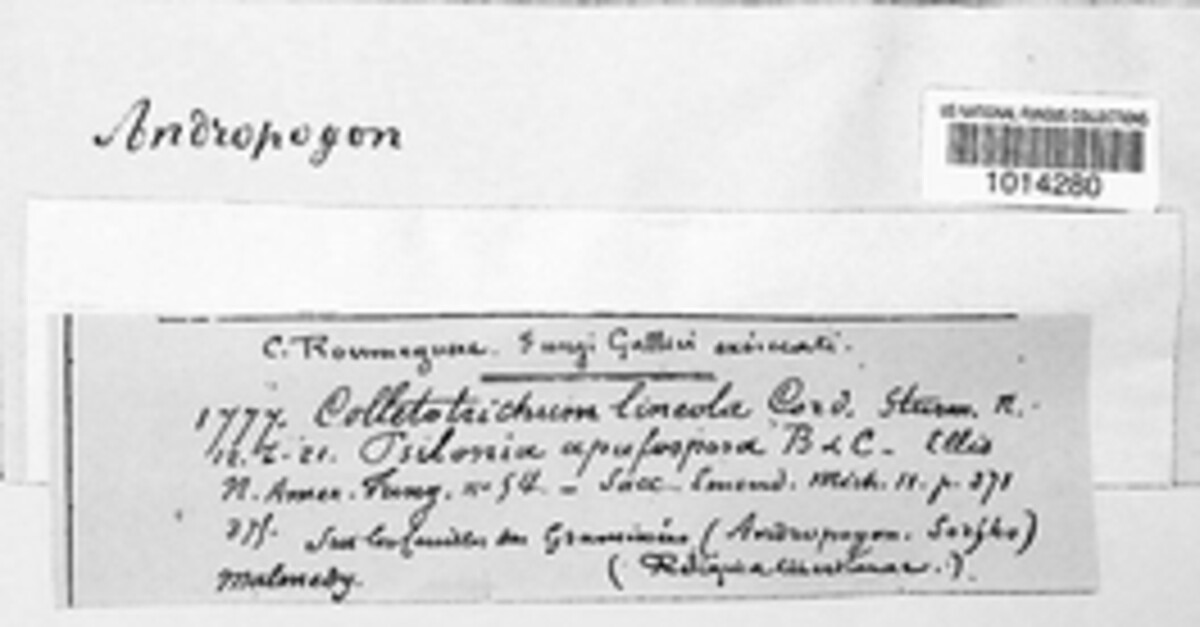 Andropogon
US NATIONAL FUNGUS COLLECTIONS
1014280
C. Roumeguere. Fungi Gallici exsiccati.
1777. Colletotrichum lineola Cord. Sturm.
Psilonia apafospora B & C - Ellis
N. Amer. Fung. no 54 - Sacc. Emend. Mich. II. p.
Sur les feuilles des Graminées (Andropogon. Sorgho)
Malmedy. (Reliquiae Libertianae.)